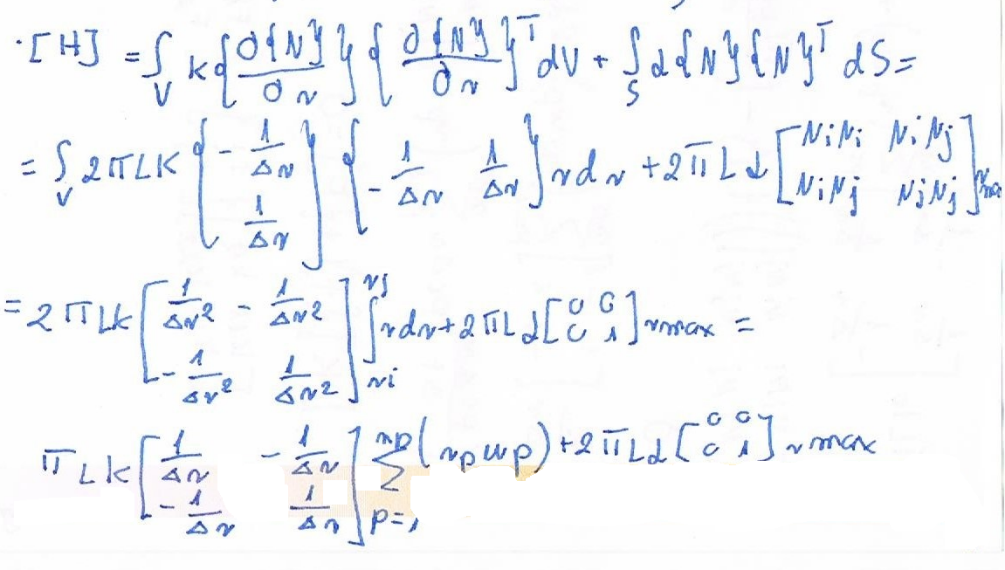 · [H] = ∫_V k { ∂{N} / ∂r } { ∂{N} / ∂r }^T dV + ∫_S α {N} {N}^T dS =
= ∫_V 2πLk { -1/Δr ; 1/Δr } { -1/Δr  1/Δr } r dr + 2πLα [ NiNi  NiNj ; NiNj  NjNj ] rmax
= 2πLk [ 1/Δr²  -1/Δr² ; -1/Δr²  1/Δr² ] ∫_{ri}^{rj} r dr + 2πLα [ 0 0 ; 0 1 ] rmax =
πLk [ 1/Δr  -1/Δr ; -1/Δr  1/Δr ] ∑_{p=1}^{np} (rp wp) + 2πLα [ 0 0 ; 0 1 ] rmax